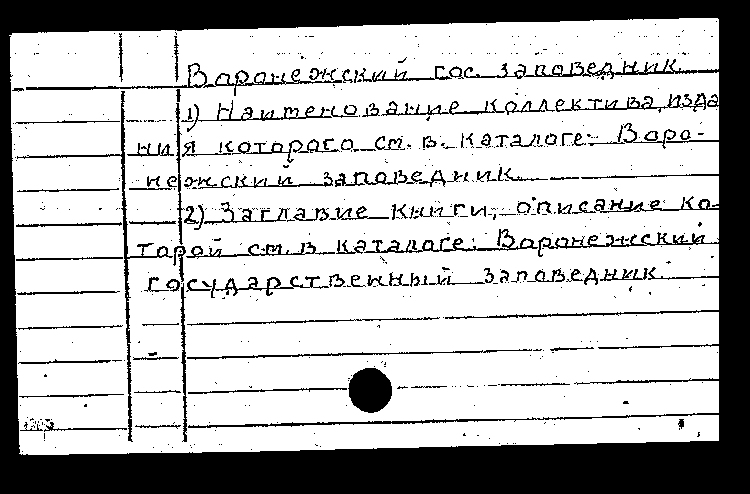 Воронежский гос. заповедник.
1) Наименование коллектива, изда
ния которого см. в. каталоге: Воро-
нежский заповедник.
2) Заглавие книги, описание ко-
торой см. в каталоге: Воронежский
государственный заповедник.